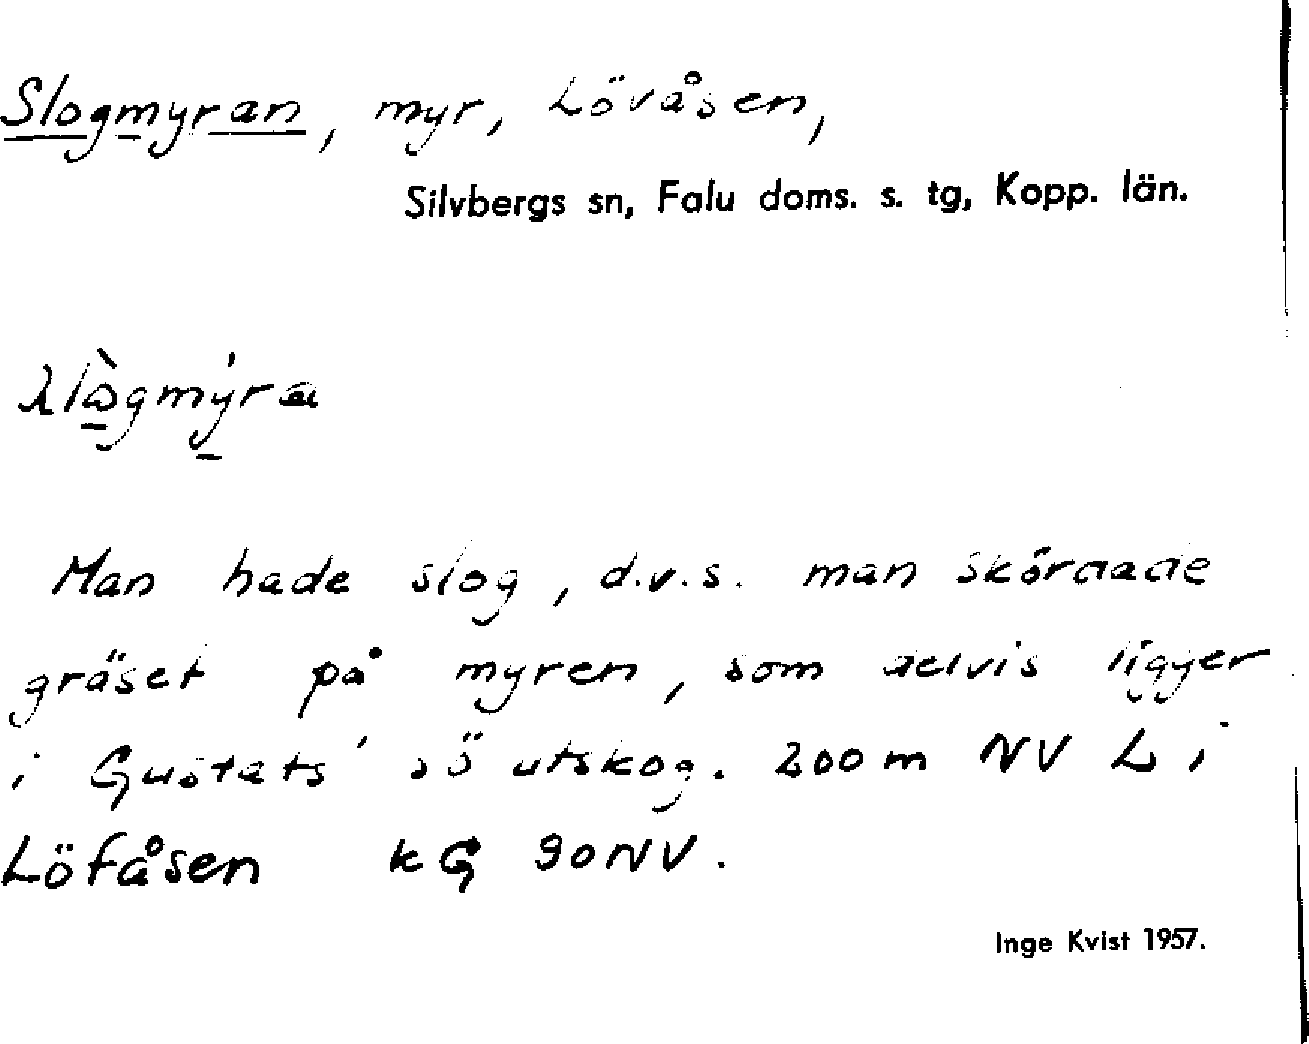 Slogmyran, myr, Lövåsen,
Silvbergs sn, Falu doms. s. tg, Kopp. län.
Man hade slog, d.v.s. man skördade
gräset på myren, som delvis ligger
i Gustats' sö utskog. 200 m NV L i
Löfåsen kG 90NV.
Inge Kvist 1957.